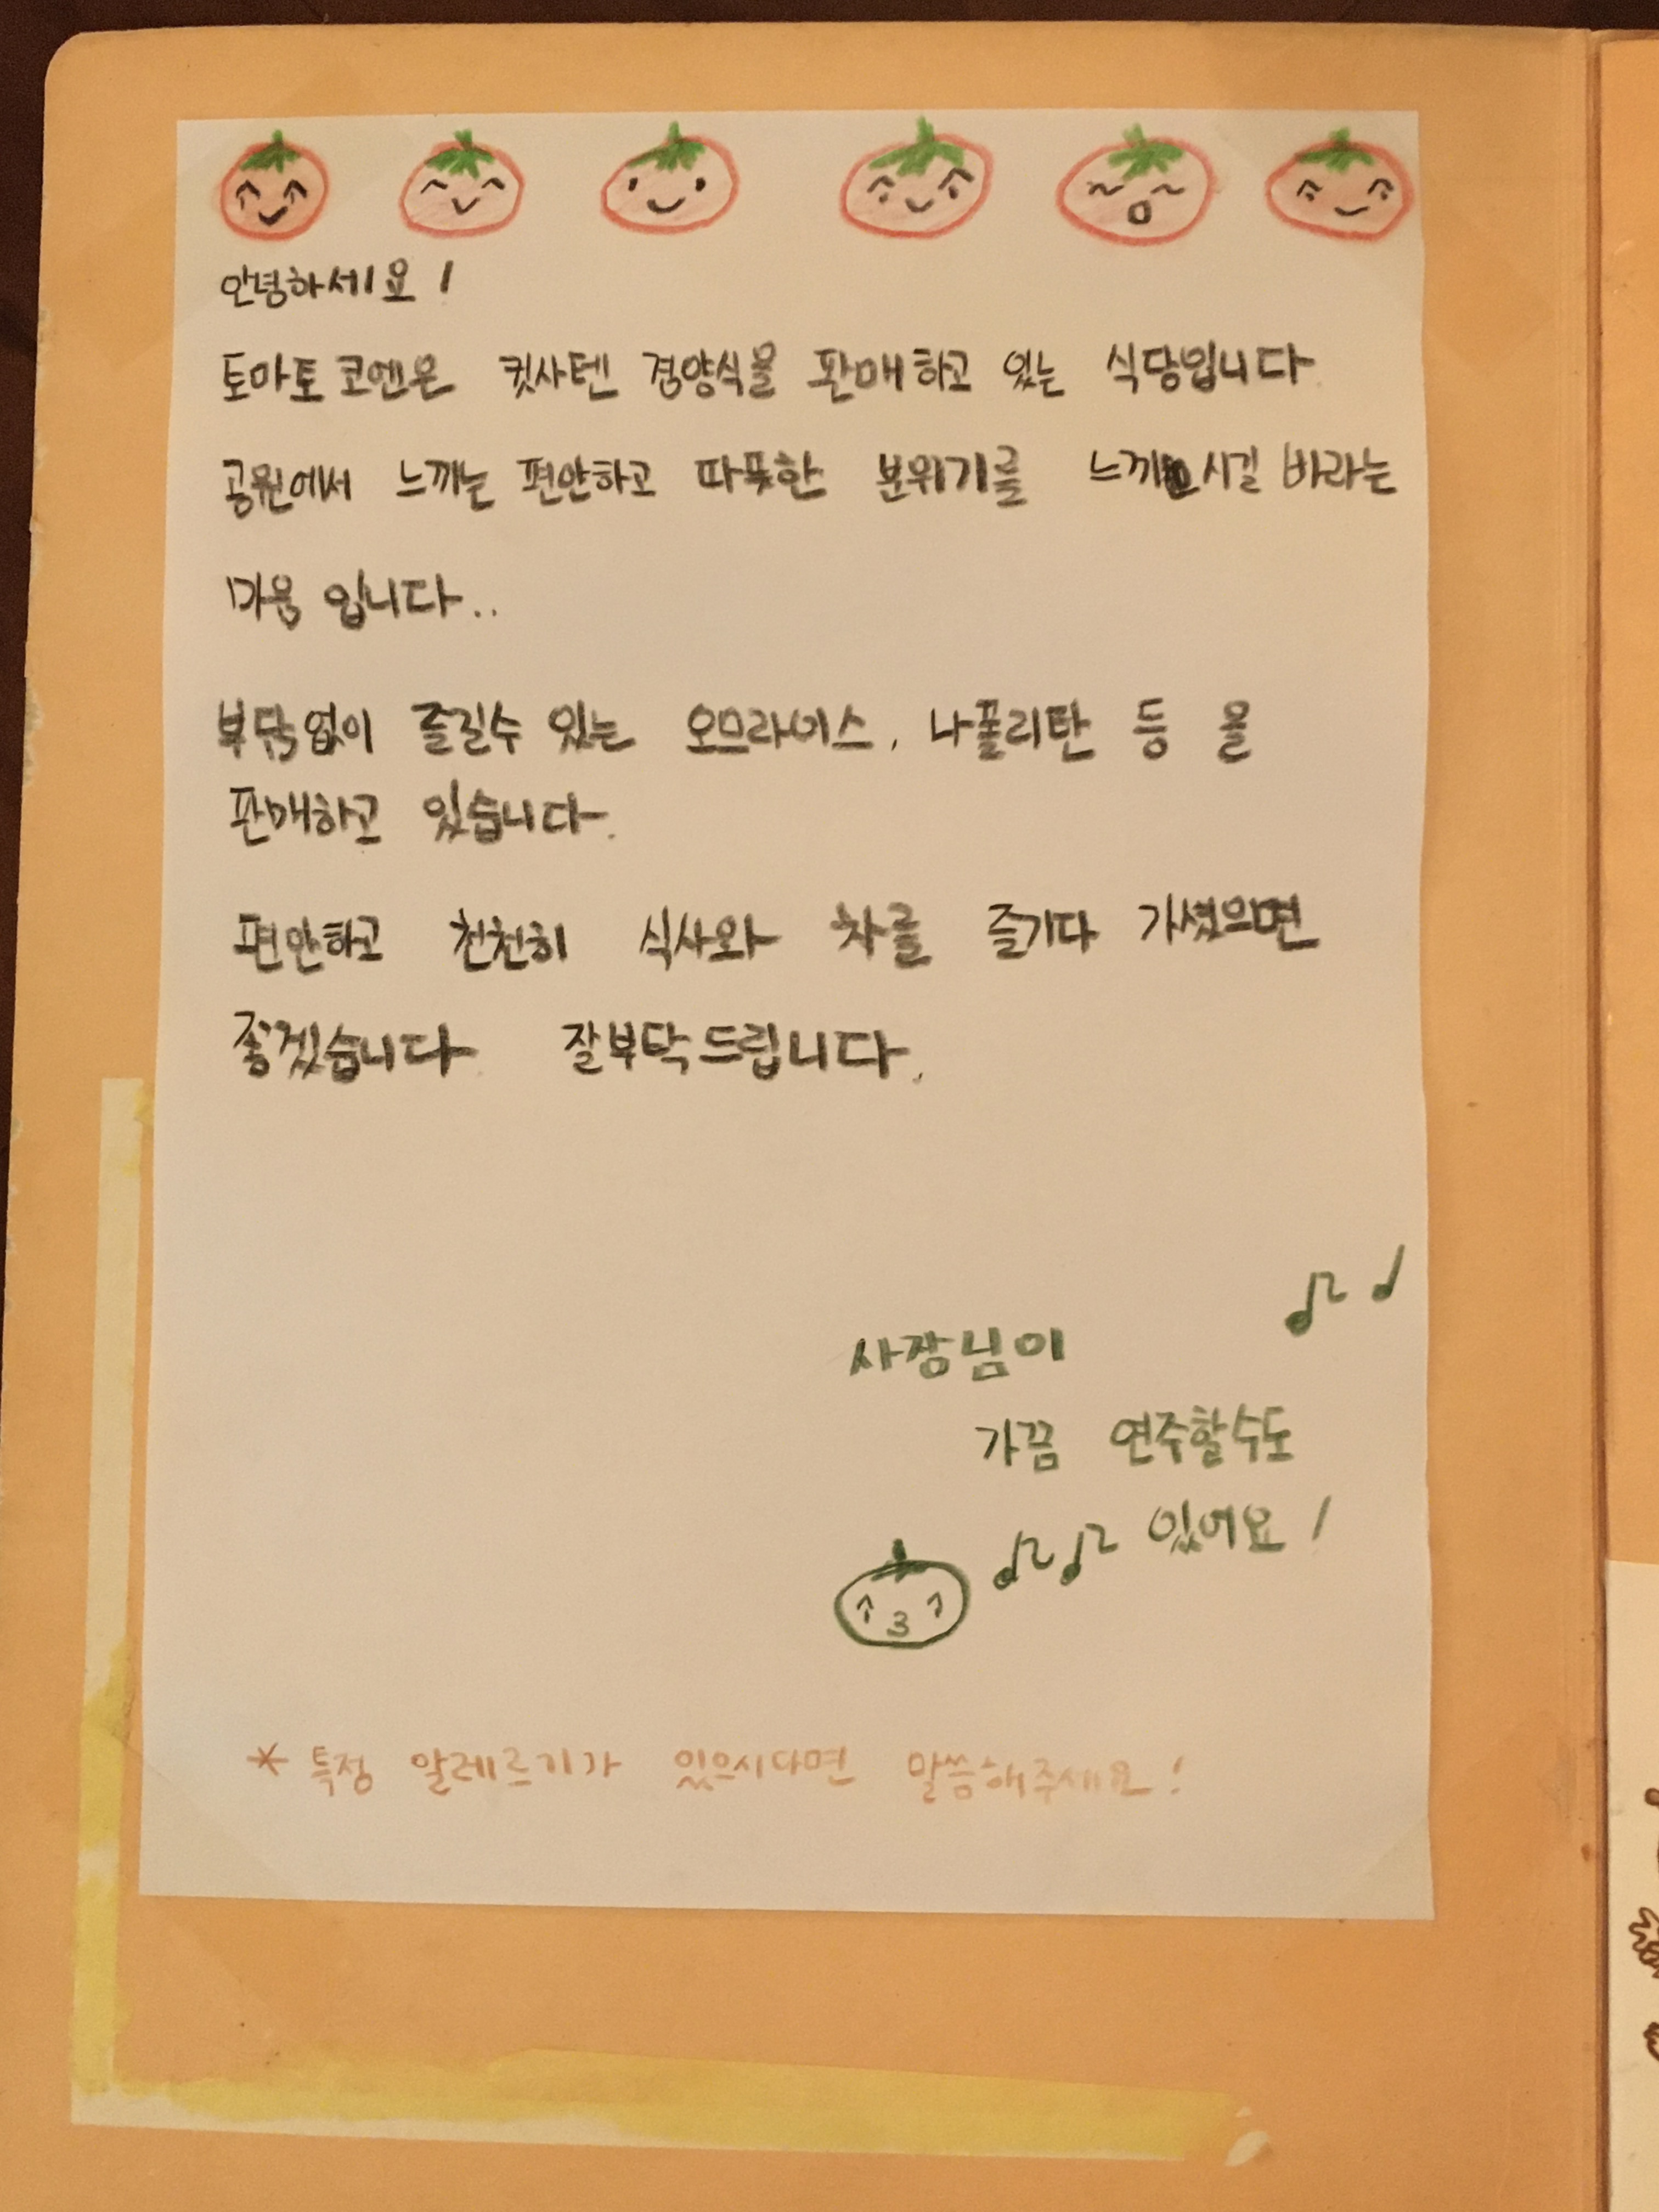 안녕하세요!
토마토 코엔은 킷사텐 경양식을 판매하고 있는 식당입니다.
공원에서 느끼는 편안하고 따뜻한 분위기를 느끼시길 바라는
마음 입니다..
부담없이 즐길수 있는 오므라이스, 나폴리탄 등 을
판매하고 있습니다.
편안하고 천천히 식사와 차를 즐기다 가셨으면
좋겠습니다. 잘부탁드립니다.
사장님이
가끔 연주할수도
있어요!
* 특정 알레르기가 있으시다면 말씀해주세요!